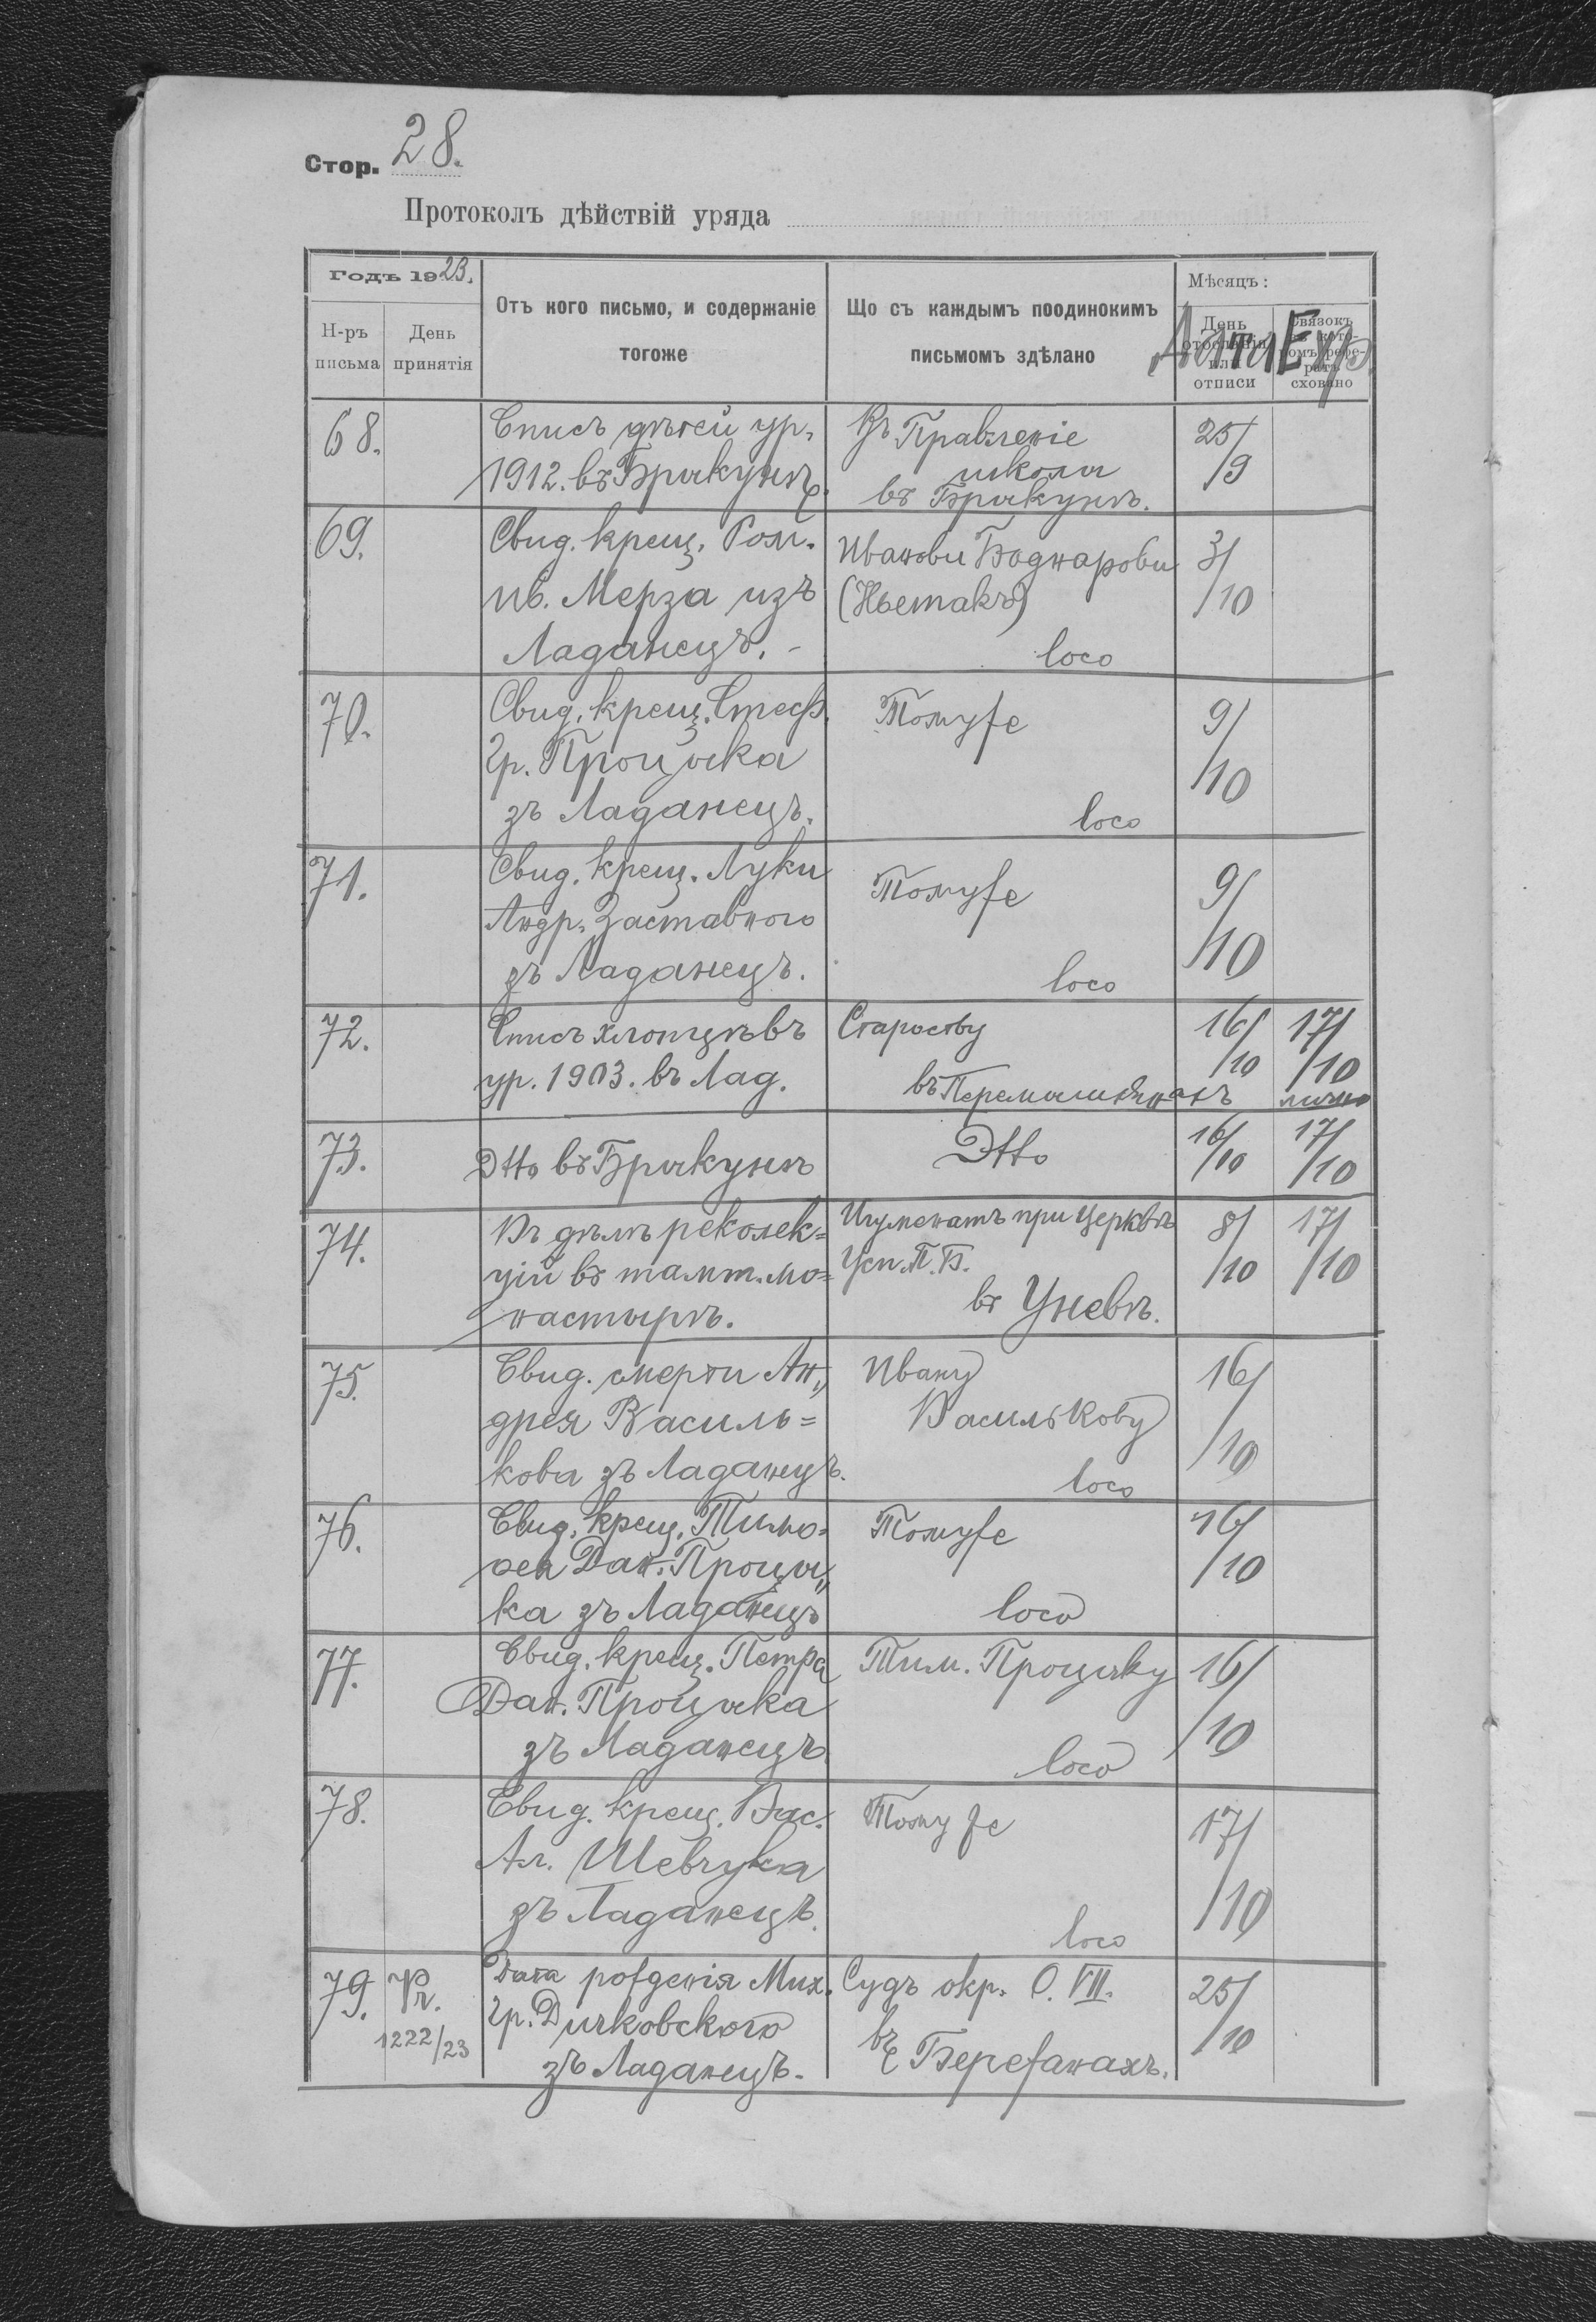 Стор. 28.
Протоколъ дѣйствій уряда
Годъ 1923.
Н-ръ письма
День принятія
Отъ кого письмо, и содержаніе
тогоже
Що съ каждымъ поодинокимъ
письмомъ здѣлано
Мѣсяцъ:
День
или
отписи
Связокъ
сховано
Дата Exp.
68.
Списъ дѣтей ур.
1912. въ Брыкунѣ.
Въ Правленіе
школы
въ Брыкунѣ.
25/9
69.
Свид. крещ. Ром.
Ив. Мерза изъ
Ладанецъ. -
Иванови Боднарови
loco
3/10
70.
Свид. крещ. Стеф.
Гр. Процыка
зъ Ладанецъ.
Томуже
loco
9/10
71.
Свид. крещ. Луки
Андр. Заставного
зъ Ладанецъ.
Томуже
loco
9/10
72.
Списъ хлопцѣвъ
ур. 1903. въ Лад.
Староству
въ Перемышлянахъ
16/10
17/10
лично
73.
Dtto въ Брыкунѣ
Dtto
16/10
17/10
74.
Въ дѣлѣ реколек=
цій въ тамт. мо=
настырѣ.
Игуменатъ при Церквѣ
Усп. П. Б.
въ Уневѣ.
8/10
17/10
75.
Свид. смерти Ан„
дрея Василь=
кова зъ Ладанецъ.
Ивану
Василькову
loco
16/10
76.
Свид. крещ. Тимо=
ѳея Дан. Процы„
ка зъ Ладанецъ
Томуже
loco
16/10
77.
Свид. крещ. Петра
Дан. Процыка
зъ Ладанецъ
Тим. Процыку
loco
16/10
78.
Свид. крещ. Вас.
Ал. Шевчука
зъ Ладанецъ.
Тому же
loco
17/10
79.
Pr.
1222/23
Дата рожденія Мих.
Гр. Дычковского
зъ Ладанецъ.
Судъ окр. О. VII.
въ Бережанахъ.
25/10